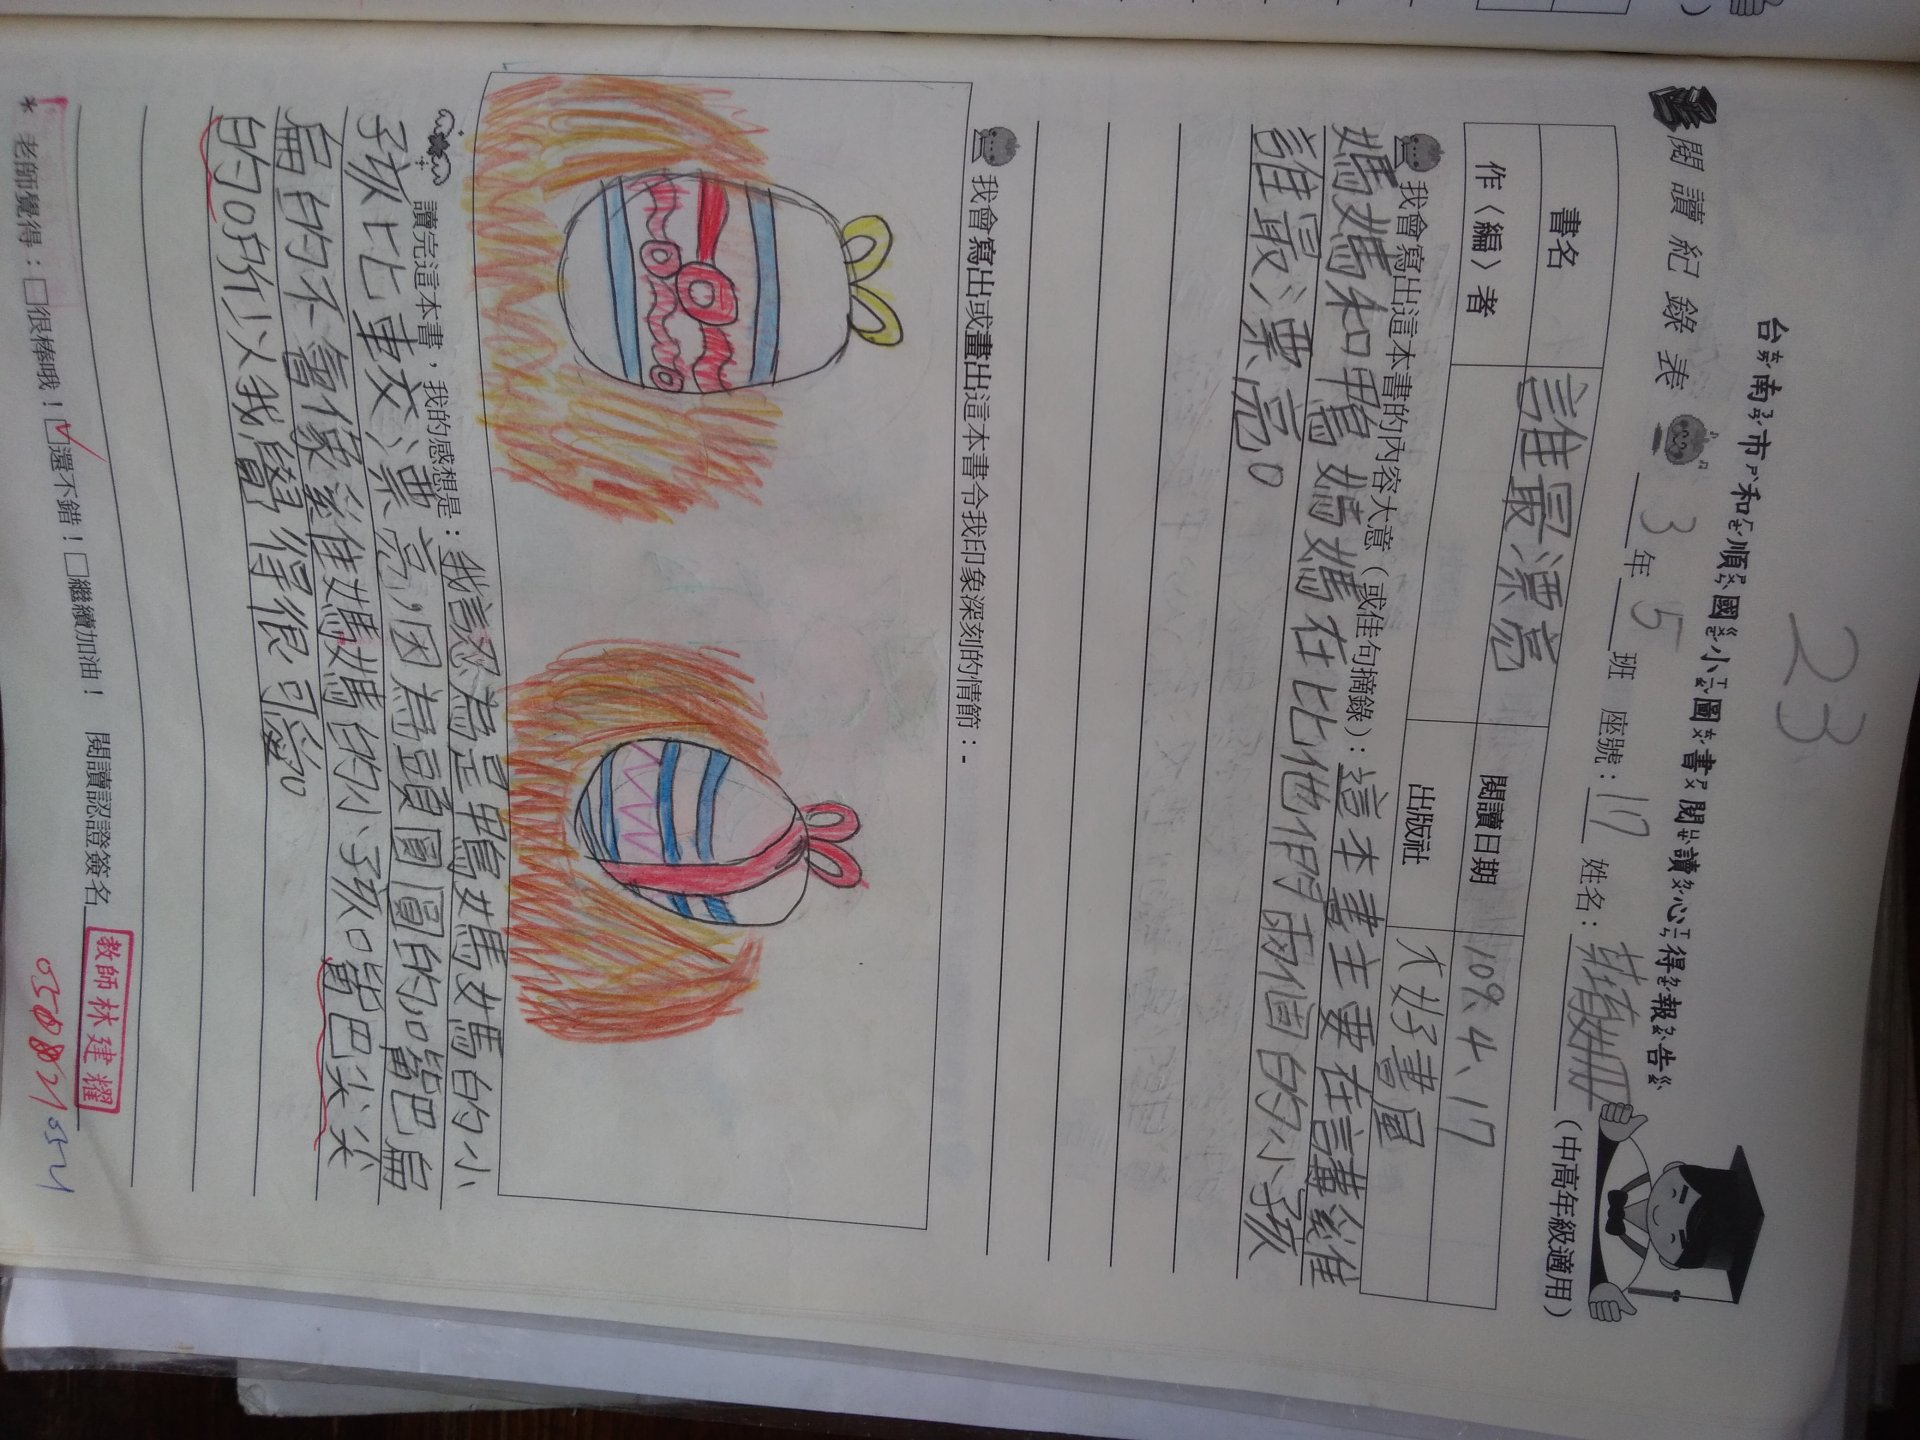 23
台南市和順國小圖書閱讀心得報告
閱讀紀錄表 3年5班 座號：17 姓名：
（中高年級適用）
書名 誰最漂亮 閱讀日期 109.4.17
作〈編〉者 出版社 大好書屋
我會寫出這本書的內容大意（或佳句摘錄）：這本書主要在講雞
媽媽和鴨媽媽在比他們兩個的小孩
誰最漂亮。
我會寫出或畫出這本書令我印象深刻的情節：
讀完這本書，我的感想是：我認為是鴨媽媽的小
孩比較漂亮，因為頭圓圓的，嘴巴扁
扁的不會像雞媽媽的小孩嘴巴尖尖
的。所以我覺得很可愛。
* 老師覺得：□很棒哦！☑還不錯！□繼續加油！ 閱讀認證簽名
教師林建耀